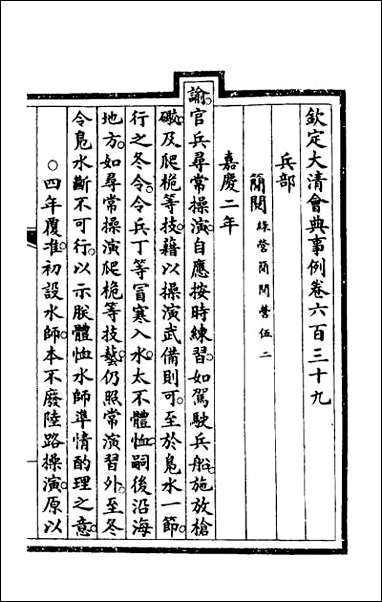 欽定大清會典事例卷六百三十九
兵部
簡閱綠營簡閱營伍二
嘉慶二年
諭官兵尋常操演。自應按時練習。如駕駛兵船。施放槍
礮。及爬桅等技。藉以操演武備則可。至於鳧水一節。
行之冬令。令兵丁等冒寒入水。太不體恤。嗣後沿海
地方。如尋常操演爬桅等技藝。仍照常演習外。至冬
令鳧水斷不可行。以示朕體恤水師準情酌理之意
○四年覆准初設水師。本不廢陸路操演。原以